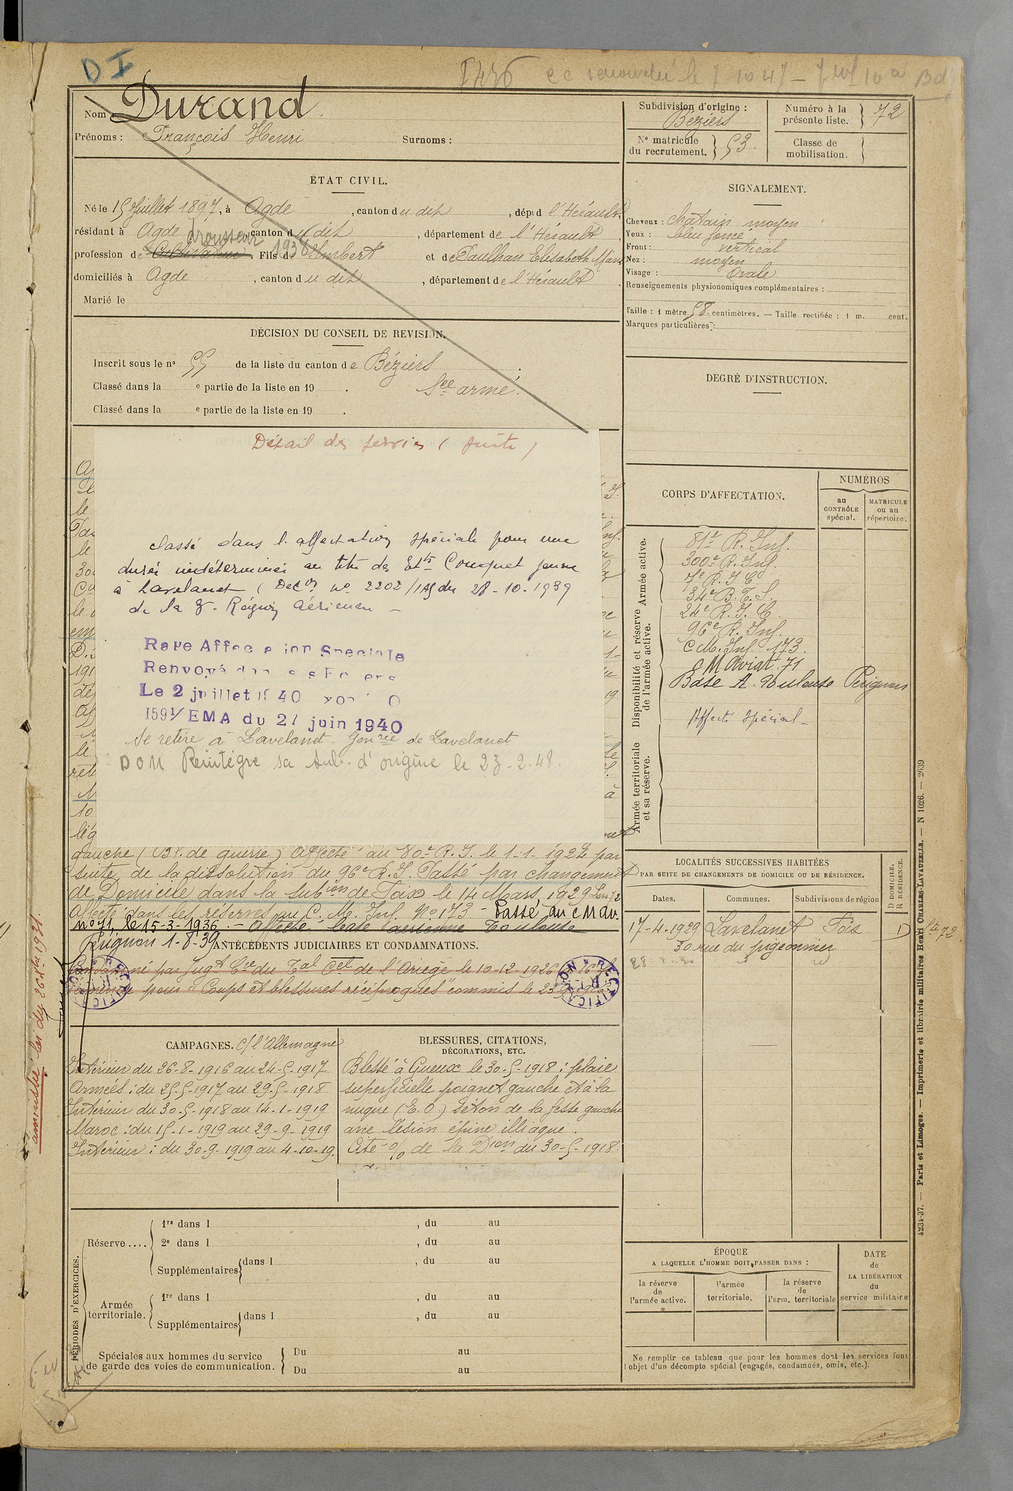 D I
Nom Durand
Prénoms : François Henri Surnoms :
ÉTAT CIVIL.
Né le 15 Juillet 1897, à Agde, canton du dit, dépt d l'Hérault
résidant à Agde, canton du dit, département de l'Hérault
profession de Cultivateur drousseur 1936 Fils d'Imbert et de Paulhan Elisabeth
domiciliés à Agde, canton du dit, département de l'Hérault
Marié le
DÉCISION DU CONSEIL DE REVISION.
Inscrit sous le n° 55 de la liste du canton de Béziers
Classé dans la e partie de la liste en 19 . Sce armé.
Classé dans la e partie de la liste en 19 .
Détail des services (suite)
Classé dans l'affectation spéciale pour une
durée indéterminée au titre des Ets Couquet jeune
à Lavelanet (Décon No 2202/ du 28-10-1939
de la Région Aérienne
Rayé Affectation Spéciale
Renvoyé dans ses Foyers
Le 2 juillet 1940
1591/EMA du 21 juin 1940
Se retire à Lavelanet Genrie de Lavelanet
DOM Réintègre sa sub. d'origine le 23-2-48.
gauche (Bl. de guerre) Affecté au 80e R.I. le 1-1-1924 par
suite de la dissolution du 96e R.I. Passé par changement
de Domicile dans la Subion de Foix le 14 Mars 1929
Affecté dans les réserves au C. M. Inf. No 173 - Passé au CM Av.
No 71, le 15-3-1936 - Affecté base aérienne Toulouse
ANTÉCÉDENTS JUDICIAIRES ET CONDAMNATIONS.
Condamné par Jugt Cel du Tal Cel de l'Ariège le 10-12-1926
pour Coups et blessures réciproques commis le 25
amnistié loi du 26 1931
CAMPAGNES. C/ l'Allemagne
Intérieur du 26-8-1916 au 24-5-1917
Armées : du 25-5-1917 au 29-5-1918
Intérieur du 30-5-1918 au 14-1-1919
Maroc : du 15-1-1919 au 29-9-1919
Intérieur : du 30-9-1919 au 4-10-19.
BLESSURES, CITATIONS,
DÉCORATIONS, ETC.
Blessé à Gueux le 30-5-1918 : plaie
superficielle poignet gauche et à la
nuque (E.O.) Séton de la fesse gauche
avec lésion épine illiaque.
Cité % de la Dion du 30-5-1918.
PÉRIODES D'EXERCICES.
Réserve ....
1re dans l , du au
2e dans l , du au
Supplémentaires dans l , du au
Armée
territoriale.
1re dans l , du au
Supplémentaires dans l , du au
Spéciales aux hommes du service
de garde des voies de communication.
Du au
Du au
Subdivision d'origine :
Béziers
N° matricule
du recrutement. 53
Numéro à la
présente liste. 72
Classe de
mobilisation.
SIGNALEMENT.
Cheveux : châtain moyen
Yeux : bleu foncé
Front : vertical
Nez : moyen
Visage : Ovale
Renseignements physionomiques complémentaires :
Taille : 1 mètre 58 centimètres. — Taille rectifiée : 1 m. cent.
Marques particulières :
DEGRÉ D'INSTRUCTION.
CORPS D'AFFECTATION.
NUMÉROS
au
CONTRÔLE
spécial.
MATRICULE
ou au
répertoire.
Armée active.
Disponibilité et réserve
de l'armée active.
Armée territoriale
et sa réserve.
81e R. Inf.
300e R. Inf.
7e R.I.C.
34e B.T.S.
24e R.I.C.
96e R. Inf.
C.M. Inf. 173.
C M Aviat. 71
Base A. Toulouse
Affecté Spécial
LOCALITÉS SUCCESSIVES HABITÉES
PAR SUITE DE CHANGEMENTS DE DOMICILE OU DE RÉSIDENCE.
D. DOMICILE.
R. RÉSIDENCE.
Dates.
Communes.
Subdivisions de région
17-4-1929 Lavelanet Foix D
30 rue du pigeonnier
ÉPOQUE
A LAQUELLE L'HOMME DOIT PASSER DANS :
la réserve
de
l'armée active.
l'armée
territoriale.
la réserve
de
l'arm. territoriale
DATE
de
LA LIBÉRATION
du
service militaire
Ne remplir ce tableau que pour les hommes dont les services font
l'objet d'un décompte spécial (engagés, condamnés, omis, etc.).
4234-37. — Paris et Limoges. — Imprimerie et librairie militaires Henri CHARLES-LAVAUZELLE. — N 1026. — 2639